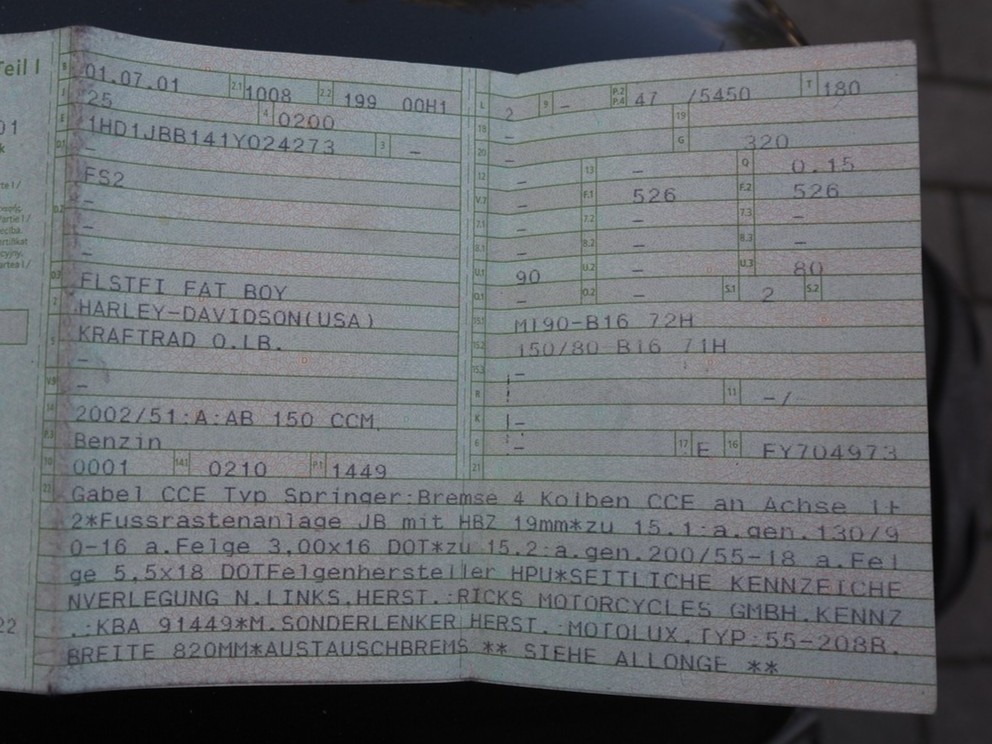 Teil I
B 01.07.01 2.1 1008 2.2 199 00H1
J 25 4 0200
E 1HD1JBB141Y024273 3 –
D.1 –
FS2
D.2 –
–
–
D.3 FLSTFI FAT BOY
2 HARLEY-DAVIDSON(USA)
5 KRAFTRAD O.LB.
–
V.9 –
14 2002/51:A:AB 150 CCM.
P.3 Benzin
10 0001 14.1 0210 P.1 1449
L 2 9 – P.2 P.4 47 /5450 T 180
18 – 19
20 – G 320
12 – 13 – Q 0.15
V.7 – F.1 526 F.2 526
7.1 – 7.2 – 7.3 –
8.1 – 8.2 – 8.3 –
U.1 90 U.2 – U.3 80
O.1 – O.2 – S.1 2 S.2
15.1 MT90-B16 72H
15.2 150/80 B16 71H
15.3 –
R 11 –/
K –
6 – 17 E 16 FY704973
21
22 Gabel CCE Typ Springer:Bremse 4 Kolben CCE an Achse lt
2*Fussrastenanlage JB mit HBZ 19mm*zu 15.1:a.gen.130/9
0-16 a.Felge 3,00x16 DOT*zu 15.2:a.gen.200/55-18 a.Fel
ge 5,5x18 DOTFelgenhersteller HPU*SEITLICHE KENNZEICHE
NVERLEGUNG N.LINKS,HERST.:RICKS MOTORCYCLES GMBH.KENNZ
.:KBA 91449*M.SONDERLENKER HERST.:MOTOLUX,TYP:55-208B,
BREITE 820MM*AUSTAUSCHBREMS ** SIEHE ALLONGE **